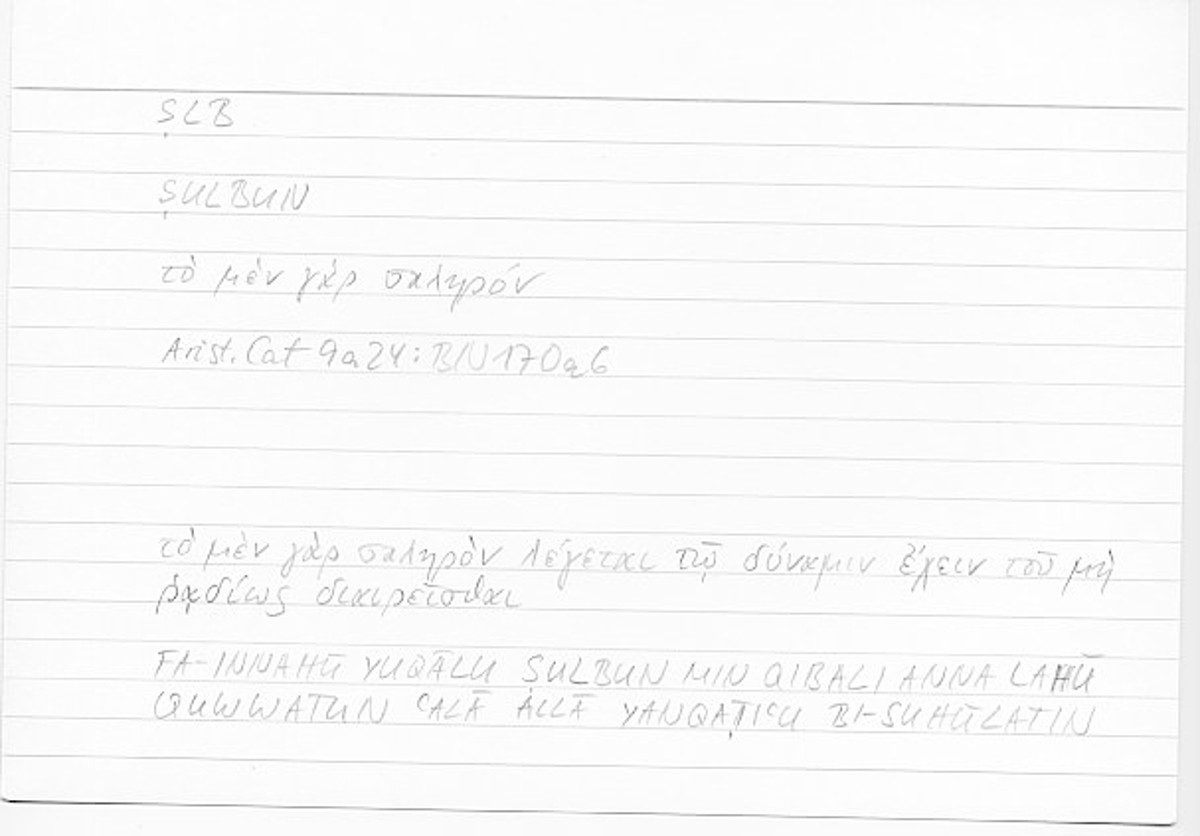 ṢLB
ṢULBUN
τὸ μὲν γὰρ σκληρόν
Arist. Cat 9a24: BN 170a6
τὸ μὲν γὰρ σκληρὸν λέγεται τῷ δύναμιν ἔχειν τοῦ μὴ
ῥᾳδίως διαιρεῖσθαι
FA-INNAHŪ YUQĀLU ṢULBUN MIN QIBALI ANNA LAHŪ
QUWWATUN ʿALĀ ALLĀ YANQAṬIʿU BI-SUHŪLATIN